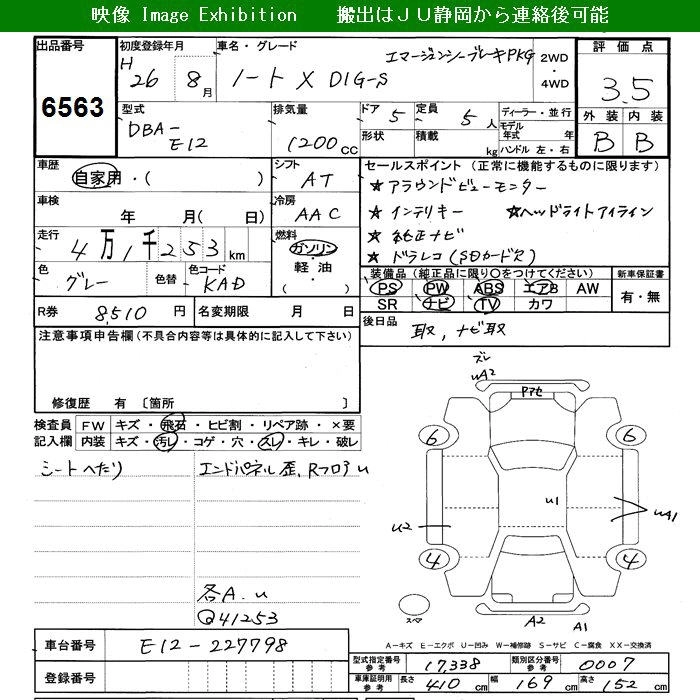 映像 Image Exhibition　　搬出はJU静岡から連絡後可能
出品番号
6563
初度登録年月
H 26 8月
車名・グレード
ノート X DIG-S エマージェンシーブレーキPKG
2WD
・
4WD
評価点
3.5
外装 内装
B B
型式
DBA-
E12
排気量
1200cc
ドア 5
定員 5人
形状
積載 kg
ディーラー・並行
モデル年式 年
ハンドル 左・右
車歴
自家用・( )
シフト
AT
車検
年 月( 日)
冷房
AAC
走行
4万1千253km
燃料
ガソリン
・
軽油
・
( )
色
グレー
色替
色コード
KAD
R券 8,510 円
名変期限 月 日
セールスポイント (正常に機能するものに限ります)
★アラウンドビューモニター
★インテリキー ★ヘッドライトアイライン
★純正ナビ
★ドラレコ(SDカード欠)
装備品(純正品に限り○をつけてください)
PS PW ABS エアB AW
SR ナビ TV カワ
新車保証書
有・無
後日品 取、ナビ取
注意事項申告欄(不具合内容等は具体的に記入して下さい)
修復歴 有 〔箇所 〕
検査員記入欄
FW キズ・飛石・ヒビ割・リペア跡・×要
内装 キズ・汚レ・コゲ・穴・スレ・キレ・破レ
シートへたり
エンドパネル歪、Rフロアu
各A.u
Q41253
ズレ
uA2
Pマセ
6 6
u1
u2
uA1
4 4
スペア
A2 A1
A−キズ E−エクボ U−凹み W−補修跡 S−サビ C−腐食 XX−交換済
車台番号 E12-227798
登録番号
型式指定番号参考 17,338
類別区分番号参考 0007
車庫証明用参考 長さ 410cm 幅 169cm 高さ 152cm